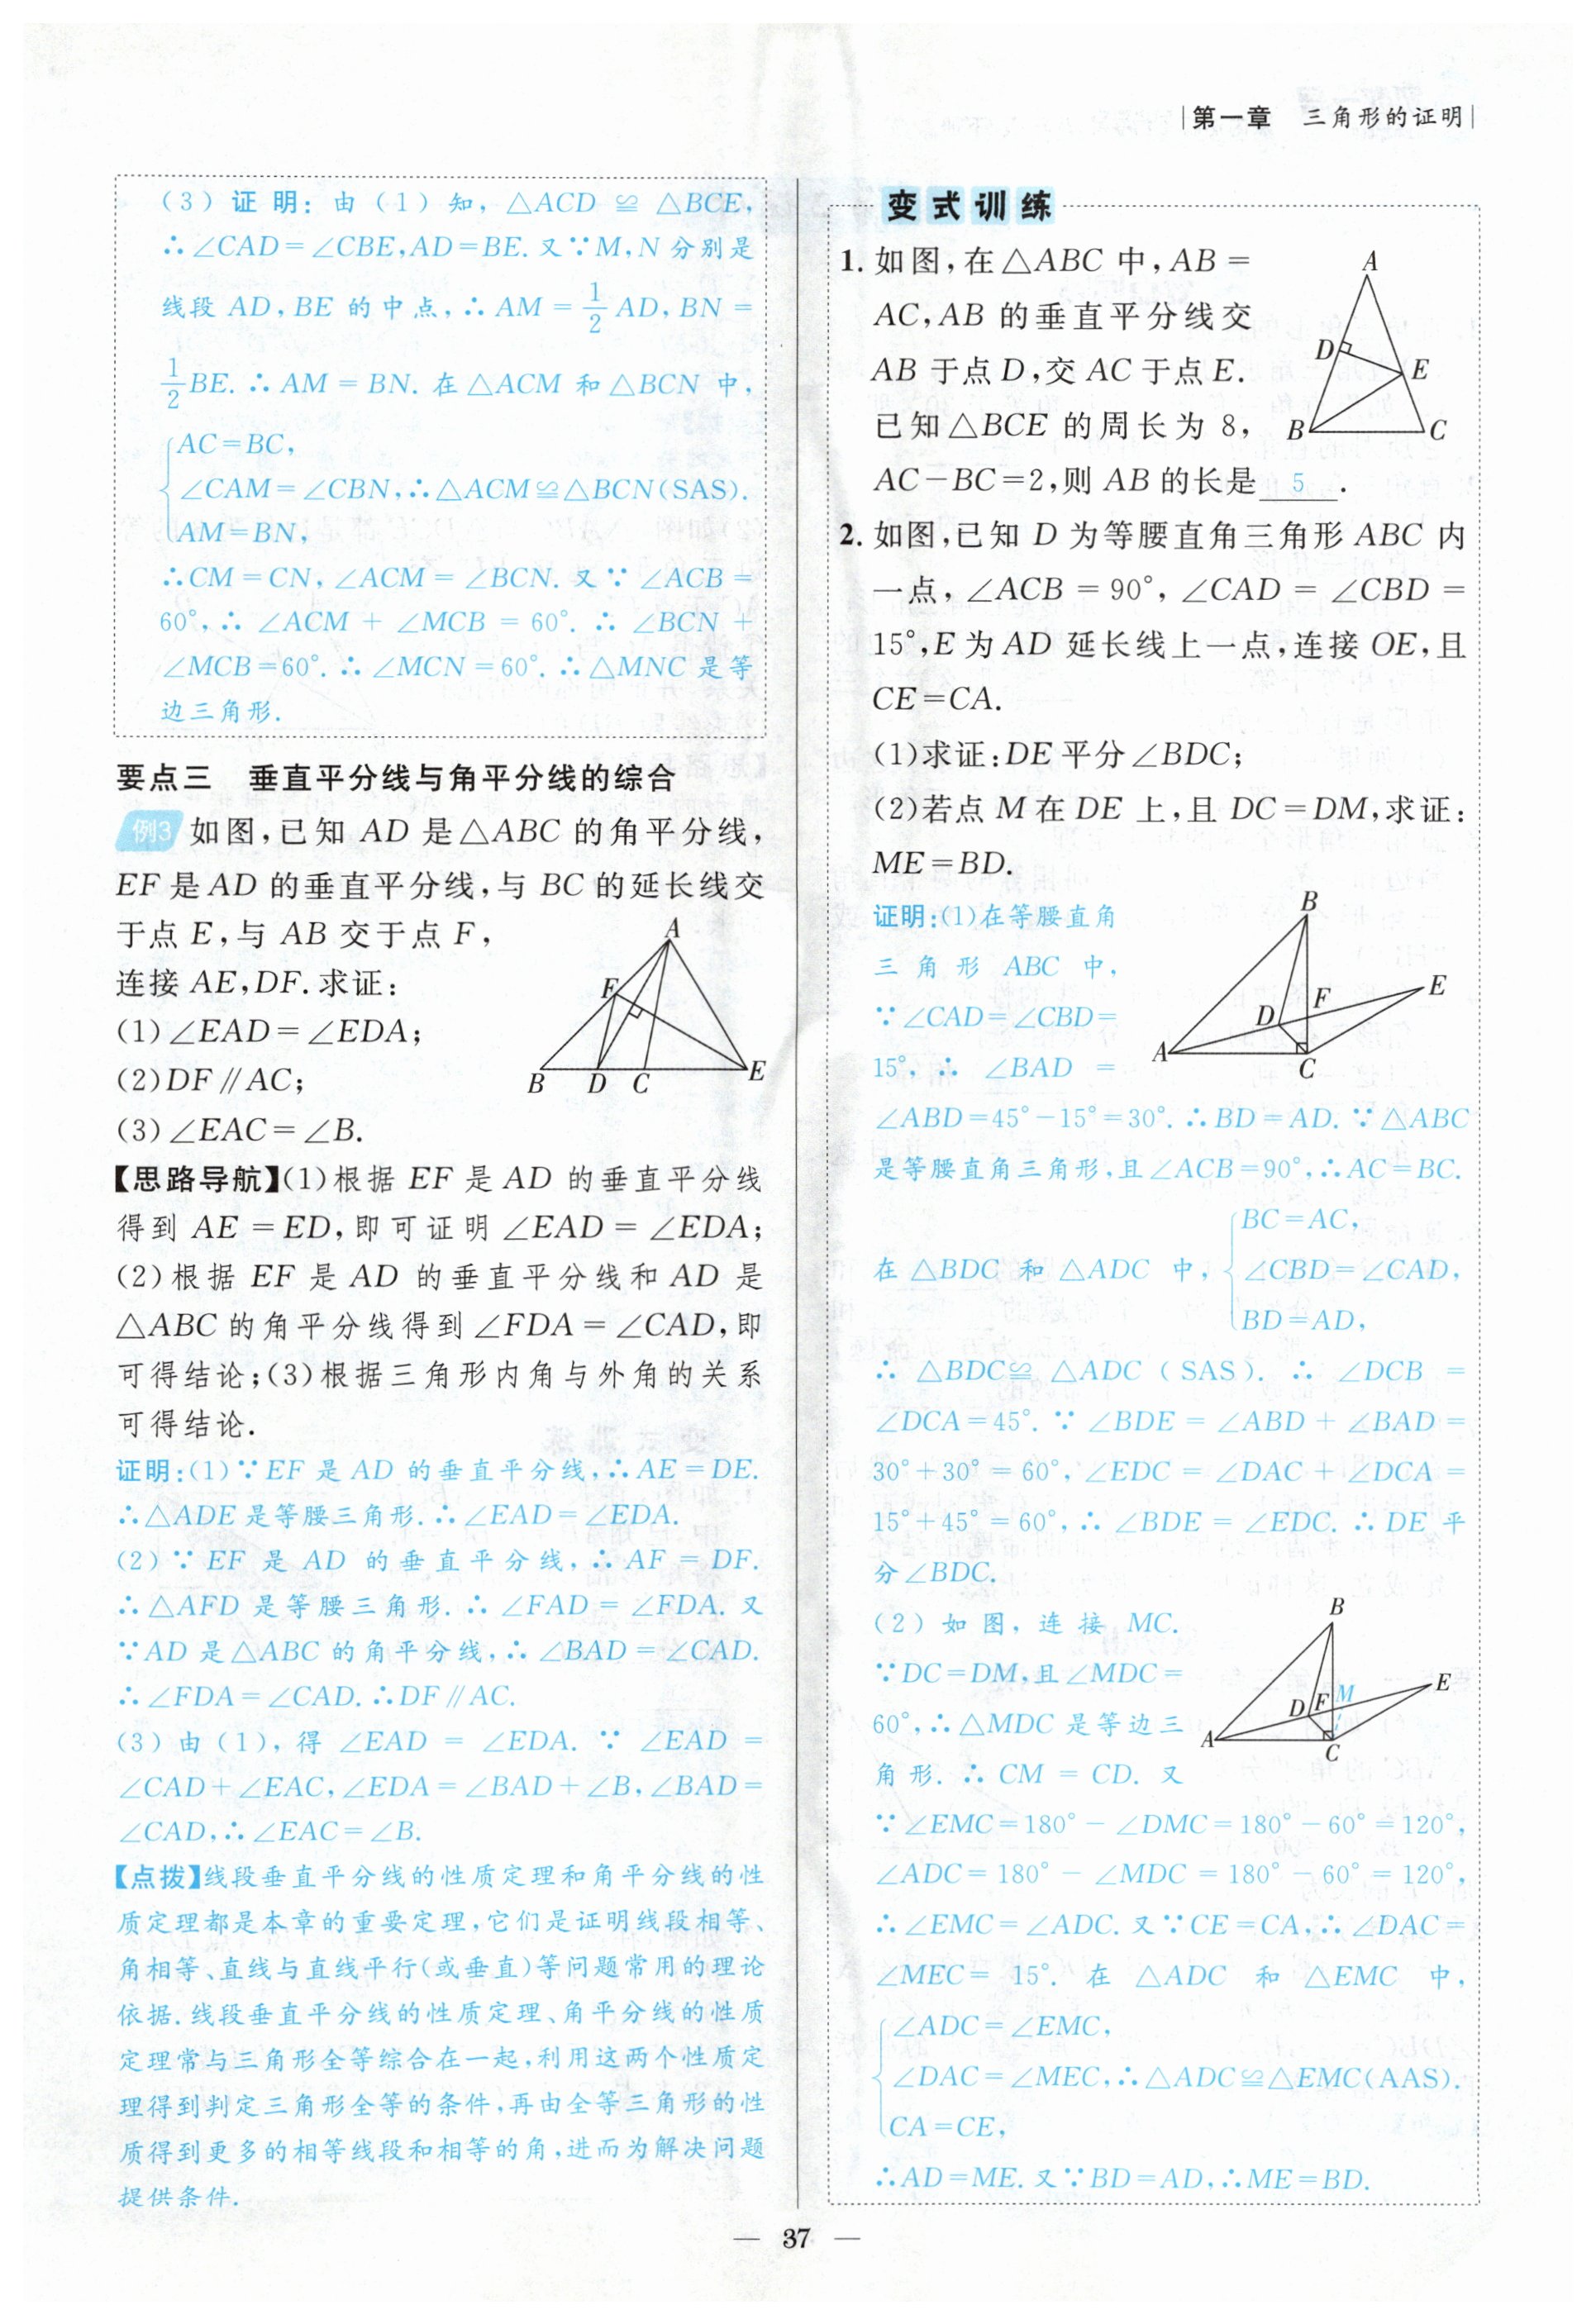 第一章 三角形的证明
(3)证明:由(1)知,△ACD≌△BCE,
∴∠CAD=∠CBE,AD=BE.又∵M,N分别是
线段AD,BE的中点,∴AM=1/2AD,BN=
1/2BE.∴AM=BN.在△ACM和△BCN中,
AC=BC,
∠CAM=∠CBN,∴△ACM≌△BCN(SAS).
AM=BN,
∴CM=CN,∠ACM=∠BCN.又∵∠ACB=
60°,∴∠ACM+∠MCB=60°.∴∠BCN+
∠MCB=60°.∴∠MCN=60°.∴△MNC是等
边三角形.
要点三 垂直平分线与角平分线的综合
例3 如图,已知AD是△ABC的角平分线,
EF是AD的垂直平分线,与BC的延长线交
于点E,与AB交于点F,
连接AE,DF.求证:
(1)∠EAD=∠EDA;
(2)DF∥AC;
(3)∠EAC=∠B.
A
F
B D C E
【思路导航】(1)根据EF是AD的垂直平分线
得到AE=ED,即可证明∠EAD=∠EDA;
(2)根据EF是AD的垂直平分线和AD是
△ABC的角平分线得到∠FDA=∠CAD,即
可得结论;(3)根据三角形内角与外角的关系
可得结论.
证明:(1)∵EF是AD的垂直平分线,∴AE=DE.
∴△ADE是等腰三角形.∴∠EAD=∠EDA.
(2)∵EF是AD的垂直平分线,∴AF=DF.
∴△AFD是等腰三角形.∴∠FAD=∠FDA.又
∵AD是△ABC的角平分线,∴∠BAD=∠CAD.
∴∠FDA=∠CAD.∴DF∥AC.
(3)由(1),得∠EAD=∠EDA.∵∠EAD=
∠CAD+∠EAC,∠EDA=∠BAD+∠B,∠BAD=
∠CAD,∴∠EAC=∠B.
【点拨】线段垂直平分线的性质定理和角平分线的性
质定理都是本章的重要定理,它们是证明线段相等、
角相等、直线与直线平行(或垂直)等问题常用的理论
依据.线段垂直平分线的性质定理、角平分线的性质
定理常与三角形全等综合在一起,利用这两个性质定
理得到判定三角形全等的条件,再由全等三角形的性
质得到更多的相等线段和相等的角,进而为解决问题
提供条件.
变式训练
1.如图,在△ABC中,AB=
AC,AB的垂直平分线交
AB于点D,交AC于点E.
已知△BCE的周长为8,
AC-BC=2,则AB的长是 5 .
A
D
E
B C
2.如图,已知D为等腰直角三角形ABC内
一点,∠ACB=90°,∠CAD=∠CBD=
15°,E为AD延长线上一点,连接OE,且
CE=CA.
(1)求证:DE平分∠BDC;
(2)若点M在DE上,且DC=DM,求证:
ME=BD.
证明:(1)在等腰直角
三角形ABC中,
∵∠CAD=∠CBD=
15°,∴∠BAD=
B
F E
D
A
C
∠ABD=45°-15°=30°.∴BD=AD.∵△ABC
是等腰直角三角形,且∠ACB=90°,∴AC=BC.
BC=AC,
在△BDC和△ADC中,∠CBD=∠CAD,
BD=AD,
∴△BDC≌△ADC(SAS).∴∠DCB=
∠DCA=45°.∵∠BDE=∠ABD+∠BAD=
30°+30°=60°,∠EDC=∠DAC+∠DCA=
15°+45°=60°,∴∠BDE=∠EDC.∴DE平
分∠BDC.
(2)如图,连接MC.
∵DC=DM,且∠MDC=
60°,∴△MDC是等边三
角形.∴CM=CD.又
B
E
D F M
A
C
∵∠EMC=180°-∠DMC=180°-60°=120°,
∠ADC=180°-∠MDC=180°-60°=120°,
∴∠EMC=∠ADC.又∵CE=CA,∴∠DAC=
∠MEC=15°.在△ADC和△EMC中,
∠ADC=∠EMC,
∠DAC=∠MEC,∴△ADC≌△EMC(AAS).
CA=CE,
∴AD=ME.又∵BD=AD,∴ME=BD.
— 37 —